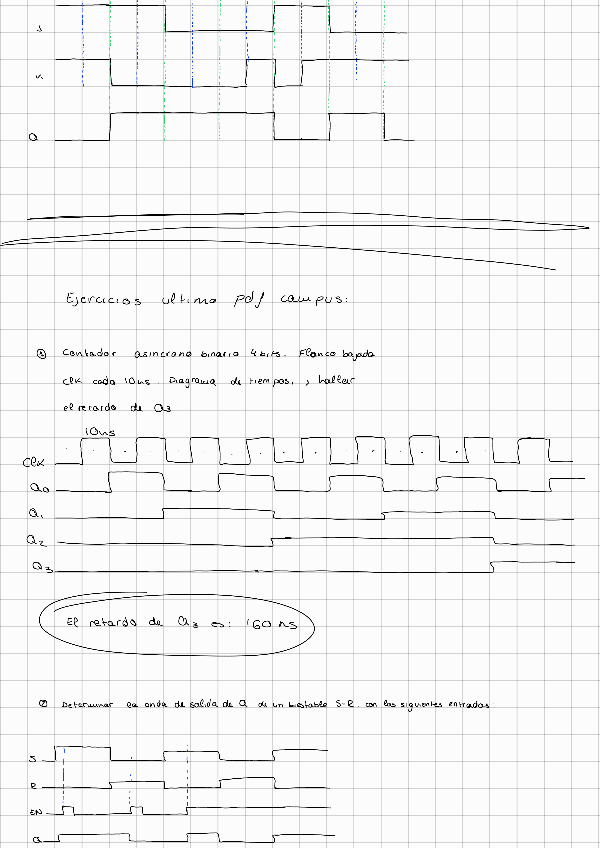 J
K
Q
Ejercicios ultimo pdf campus:
① Contador asincrono binario 4 bits. Flanco bajada
clk cada 10ns. Diagrama de tiempos, y hallar
el retardo de Q3
10ns
Clk
Q0
Q1
Q2
Q3
El retardo de Q3 es: 160 ns
② Determinar la onda de salida de Q de un biestable S-R. con las siguientes entradas
S
R
EN
Q